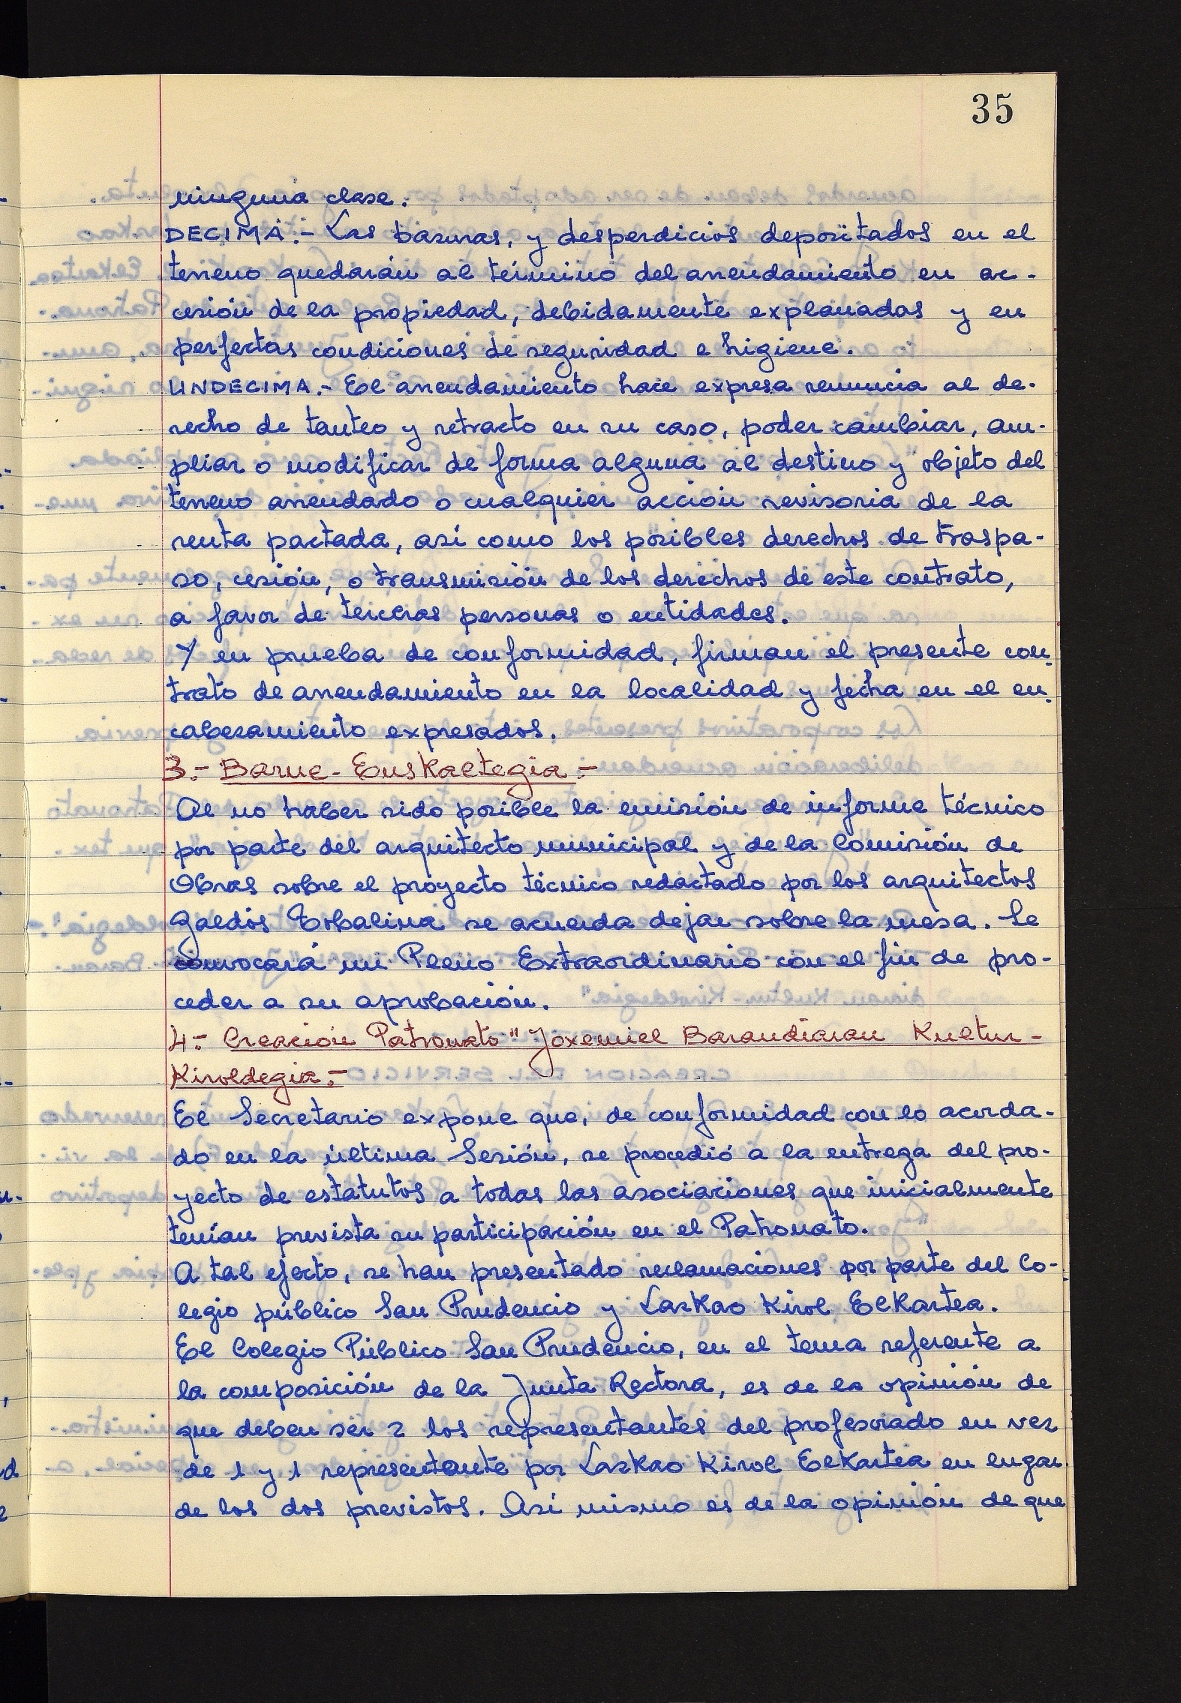 35
ninguna clase.
DECIMA.- Las basuras, y desperdicios depositados en el
terreno quedarán al término del arrendamiento en ac-
cesión de la propiedad, debidamente explanadas y en
perfectas condiciones de seguridad e higiene.
UNDECIMA.- El arrendamiento hace expresa renuncia al de-
recho de tanteo y retracto en su caso, poder cambiar, am-
pliar o modificar de forma alguna al destino y objeto del
terreno arrendado o cualquier acción revisoria de la
renta pactada, así como los posibles derechos de traspa-
so, cesión, o transmisión de los derechos de este contrato,
a favor de terceras personas o entidades.
Y en prueba de conformidad, firman el presente con-
trato de arrendamiento en la localidad y fecha en el en-
cabezamiento expresados.
3.- Barne-Euskaltegia.-
Al no haber sido posible la emisión de informe técnico
por parte del arquitecto municipal y de la Comisión de
Obras sobre el proyecto técnico redactado por los arquitectos
Galdós Erbalina se acuerda dejar sobre la mesa. Se
convocará un Pleno Extraordinario con el fin de pro-
ceder a su aprobación.
4.- Creación Patronato "Joxemiel Barandiaran Kultur-
Kiroldegia.-
El Secretario expone que, de conformidad con lo acorda-
do en la última Sesión, se procedió a la entrega del pro-
yecto de estatutos a todas las asociaciones que inicialmente
tenían prevista su participación en el Patronato.
A tal efecto, se han presentado reclamaciones por parte del Co-
legio público San Prudencio y Lazkao Kirol Elkartea.
El Colegio Público San Prudencio, en el tema referente a
la composición de la Junta Rectora, es de la opinión de
que deben ser 2 los representantes del profesorado en vez
de 1 y 1 representante por Lazkao Kirol Elkartea en lugar
de los dos previstos. Así mismo es de la opinión de que